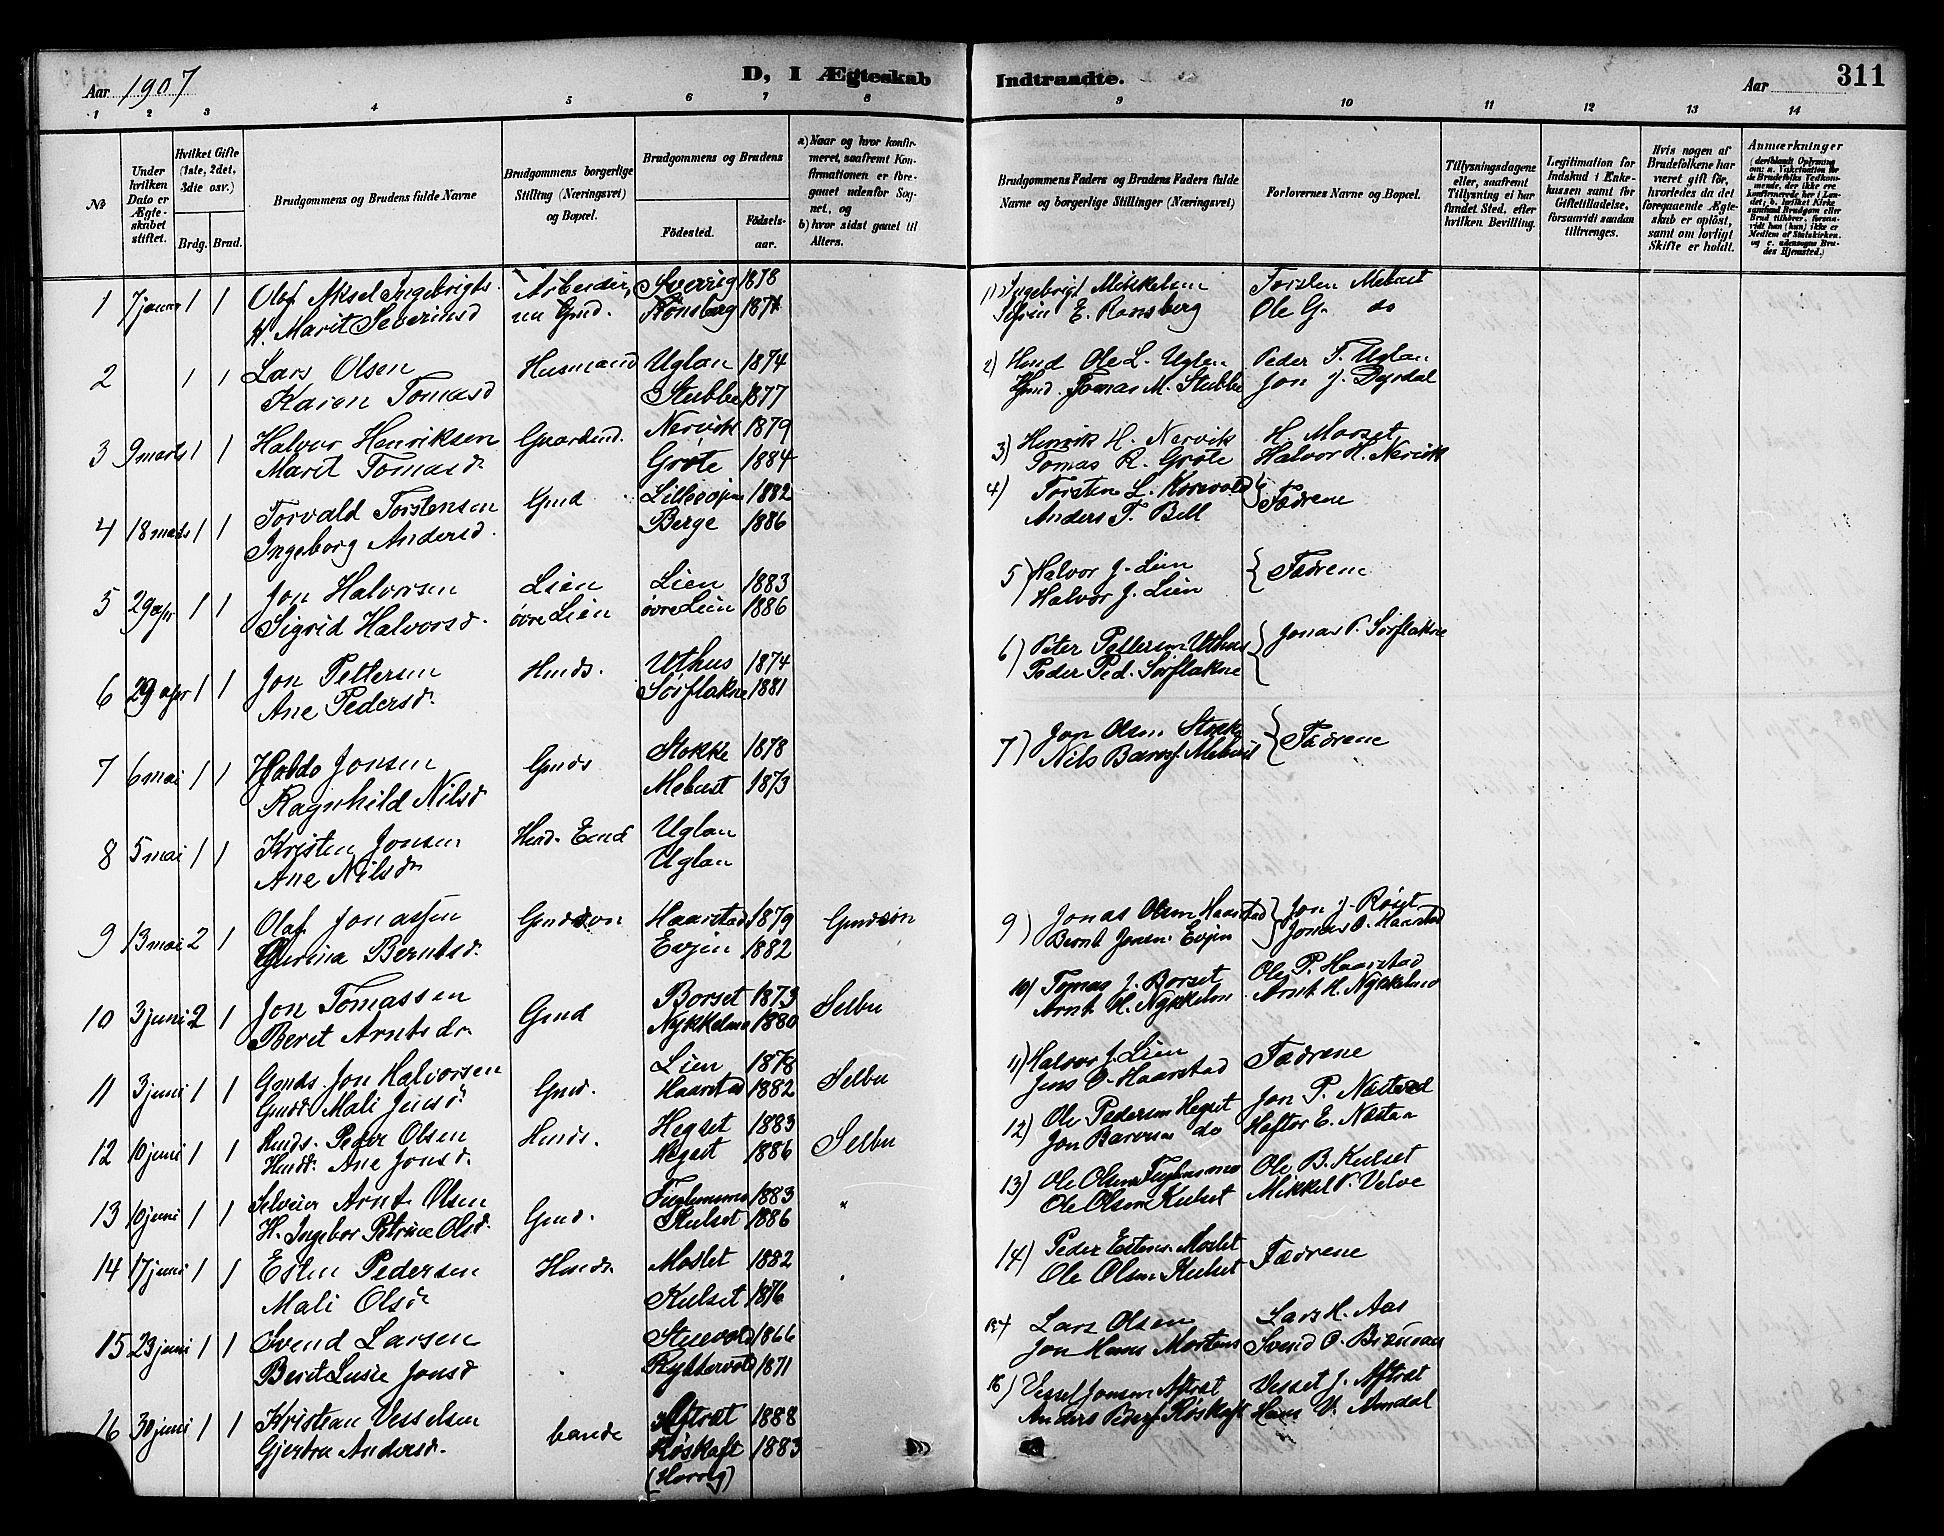 Aar 1907
D, I Ægteskab
Indtraadte.
Aar
311
1 2 3 4 5 6 7 8 9 10 11 12 13 14
No
Under hvilken Dato er Ægteskabet stiftet.
Hvilket Gifte (1ste, 2det, 3die osv.)
Brdg. Brud.
Brudgommens og Brudens fulde Navne
Brudgommens borgerlige Stilling (Næringsvei) og Bopæl.
Brudgommens og Brudens
Fødested.
Fødselsaar.
a) Naar og hvor konfirmeret, saafremt Konfirmationen er foregaaet udenfor Sognet, og
b) hvor sidst gaaet til Alters.
Brudgommens Faders og Brudens Faders fulde Navne og borgerlige Stillinger (Næringsvei)
Forlovernes Navne og Bopæl.
Tillysningsdagene eller, saafremt Tillysning ei har fundet Sted, efter hvilken Bevilling.
Legitimation for Indskud i Enkekassen samt for Giftetilladelse, forsaavidt saadan tiltrænges.
Hvis nogen af Brudefolkene har været gift før, hvorledes da det foregaaende Ægteskab er opløst, samt om lovligt Skifte er holdt.
Anmærkninger
1 7 januar 1 1 Olaf Aksel Ingebrigts. Arbeider, Sverrig 1878 1) Ingebrigt Mikkelsen Torsten Mebust
Marit Severinsd Rønsberg 1871 E. Rønsberg Ole G. do
2 1 1 Lars Olsen Husmand Uglan 1874 2) Hmd Ole L. Uglan Peder T. Uglan
Karen Tomasd Stubbe 1877 Gmd. Tomas M. Stubbe Jon J. Dyrdal
3 9 marts 1 1 Halvor Henriksen Gaardmd. Nervik 1879 3) Henrik H. Nervik H. Morset
Marit Tomasdr Grøte 1884 Tomas R. Grøte Halvor H. Nervik
4 18 marts 1 1 Torvald Torstensen Gmd 1882 4) Torsten L. Fædrene
Ingeborg Andersd. Berge 1886 Anders T. Bell
5 29 apr 1 1 Jon Halvorsen Lien Lien 1883 5) Halvor J. Lien Fædrene
Sigrid Halvorsd. øvre Lien øvre Lien 1886 Halvor J. Lien
6 29 apr 1 1 Jon Pettersen Hmds. Uthus 1874 6) Peter Pettersen Uthus Jonas P. Sørflakne
Ane Pedersdr. Sørflakne 1881 Peder Ped. Sørflakne
7 6 mai 1 1 Haldo Jonsen Gmds Stokke 1878 7) Jon Olsen Stokke Fædrene
Ragnhild Nilsd Mebust 1873 Nils Mebust
8 5 mai 1 1 Kristen Jonsen Hmd. Uglan
Ane Nilsdr Uglan
9 13 mai 2 1 Olaf Jonassen Gmdsøn Haarstad 1879 Gmdsøn 9) Jonas Olsen Haarstad Jon J. Røset
Gurina Berntsd. Evjen 1882 Bernt Jonsen Evjen Jonas O. Haarstad
10 3 juni 2 1 Jon Tomassen Gmd Borset 1873 Selbu 10) Tomas J. Borset Ole P. Haarstad
Berit Arntsdr. Nykkelmo 1880 Arnt H. Nykkelm Arnt H. Nykkelmo
11 3 juni 1 1 Gmds. Jon Halvorsen Gmd. Lien 1878 Selbu 11) Halvor J. Lien Fædrene
Gmdd. Mali Jensd Haarstad 1882 Jens O. Haarstad
12 10 juni 1 1 Hmds. Peder Olsen Hmds. Hegset 1883 Selbu 12) Ole Pedersen Hegset Jon P.
Hmdd. Ane Jonsd. Hegset 1886 Jon do Haftor E.
13 10 juni 1 1 Selveier Arnt Olsen Gmd. Fuglemsmo 1883 " 13) Ole Olsen Fuglemsmo Ole B. Kulset
H. Ingebor Petrine Olsd. Kulset 1886 Ole Olsen Kulset Mikkel P. Velve
14 17 juni 1 1 Esten Pedersen Hmds. Moslet 1882 14) Peder Estens. Moslet Fædrene
Mali Olsd Kulset 1876 Ole Olsen Kulset
15 23 juni 1 1 Svend Larsen Stuevold 1866 Lars Olsen Lars H. Aas
Berit Lusie Jonsd Ryttervold 1871 Jon Hans Mortens Svend O.
16 30 juni 1 1 Kristian Vesselsen bonde Aftræt 1888 16) Vessel Jonsen Aftræt Vessel J. Aftræt
Gjertru Andersd. Røskaft 1883 Anders Peders. Røskaft Hans V. Amdal